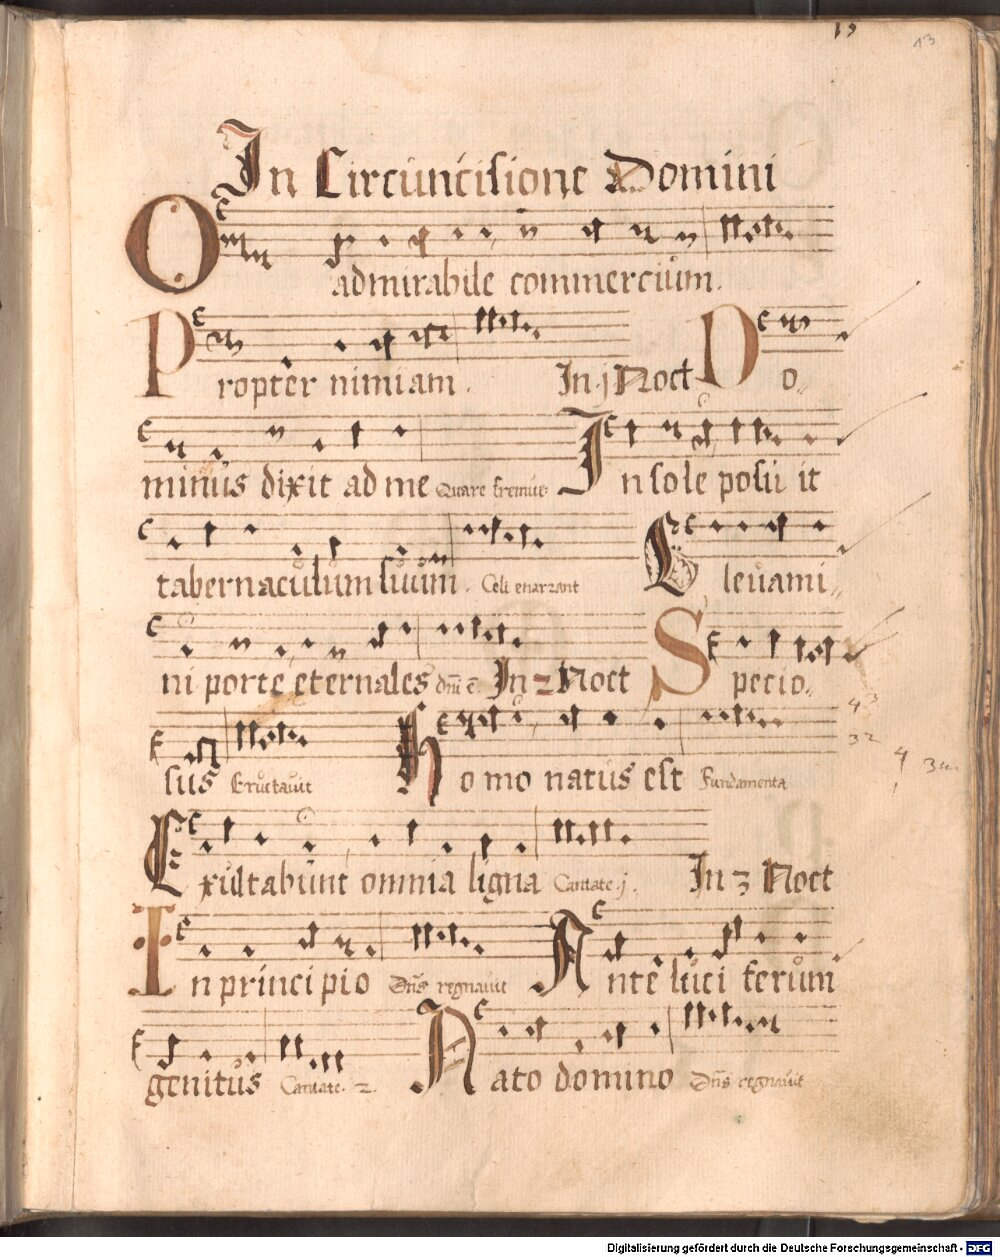 13
In Circuncisione Domini
O admirabile commercium.
Propter nimiam. In j Noct Do
minus dixit ad me Quare fremue In sole posu it
tabernaculum suum. Celi enarrant Elevami
ni porte eternales dni e. In 2 Noct Specio
sus Eructauit Homo natus est Fundamenta
Exultabunt omnia ligna Cantate.j. In 3 Noct
In principio Dns regnauit Ante luci ferum
genitus Cantate. 2. Nato domino Dns regnauit
Digitalisierung gefördert durch die Deutsche Forschungsgemeinschaft - DFG